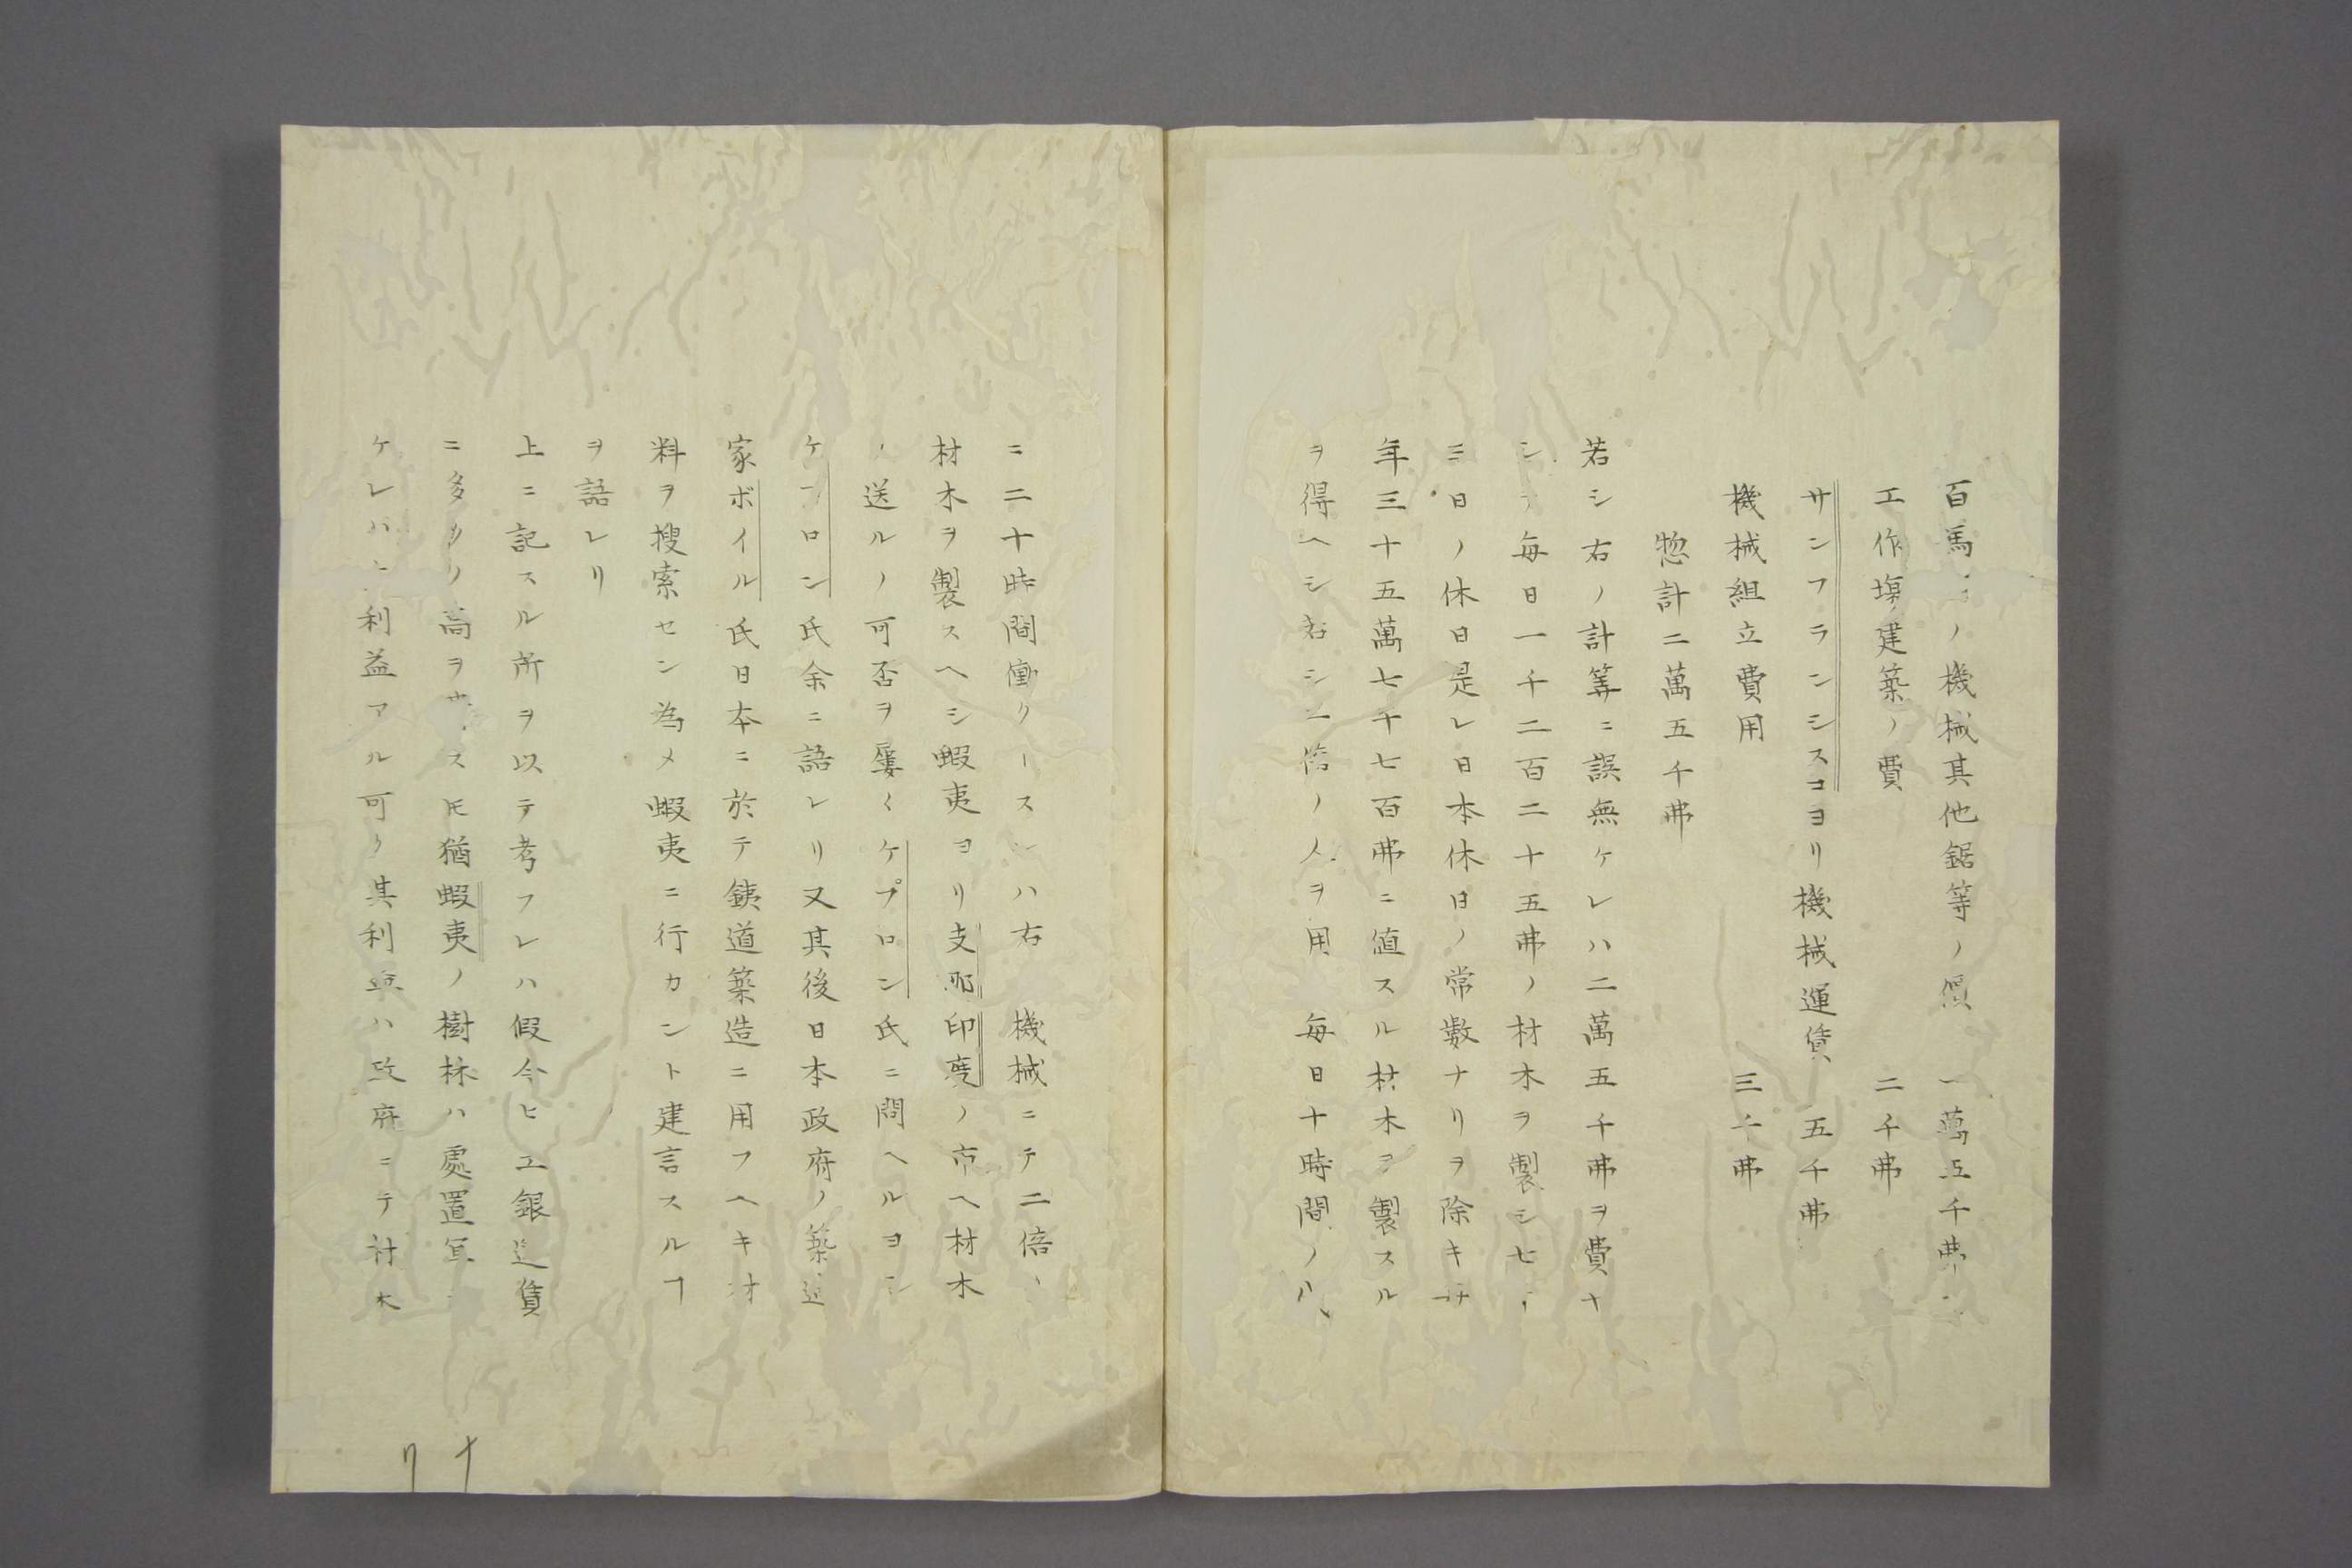 百馬ノ機械其他鋸等ノ價 一萬五千弗
工作場建築ノ費 二千弗
サンフランシスコヨリ機械運賃 五千弗
機械組立費用 三千弗
惣計二萬五千弗
若シ右ノ計筭ニ誤無ケレハ二萬五千弗ヲ費ナ
シテ毎日一千二百二十五弗ノ材木ヲ製シ七
日ノ休日是レ日本休日ノ常數ナリヲ除キ
年三十五萬七千七百弗ニ値スル材木ヲ製スル
ヲ得ヘシ若シ二倍ノ人ヲ用 毎日十時間ノハ
ニ二十時間働クースレハ右 機械ニテ二倍
材木ヲ製スヘシ蝦夷ヨリ支那印度ノ市ヘ材木
送ルノ可否ヲ屢〻ケプロン氏ニ問ヘルヨシ
ケプロン氏余ニ語レリ又其後日本政府ノ築造
家ボイル氏日本ニ於テ銕道築造ニ用フヘキ材
料ヲ搜索セン為メ蝦夷ニ行カント建言スルヿ
ヲ語レリ
上ニ記スル所ヲ以テ考フレハ假令ヒ工銀運賃
ニ多クノ高ヲ ストモ猶蝦夷ノ樹林ハ處置宜
ケレハ 利益アル可ク其利益ハ政府ニテ材木